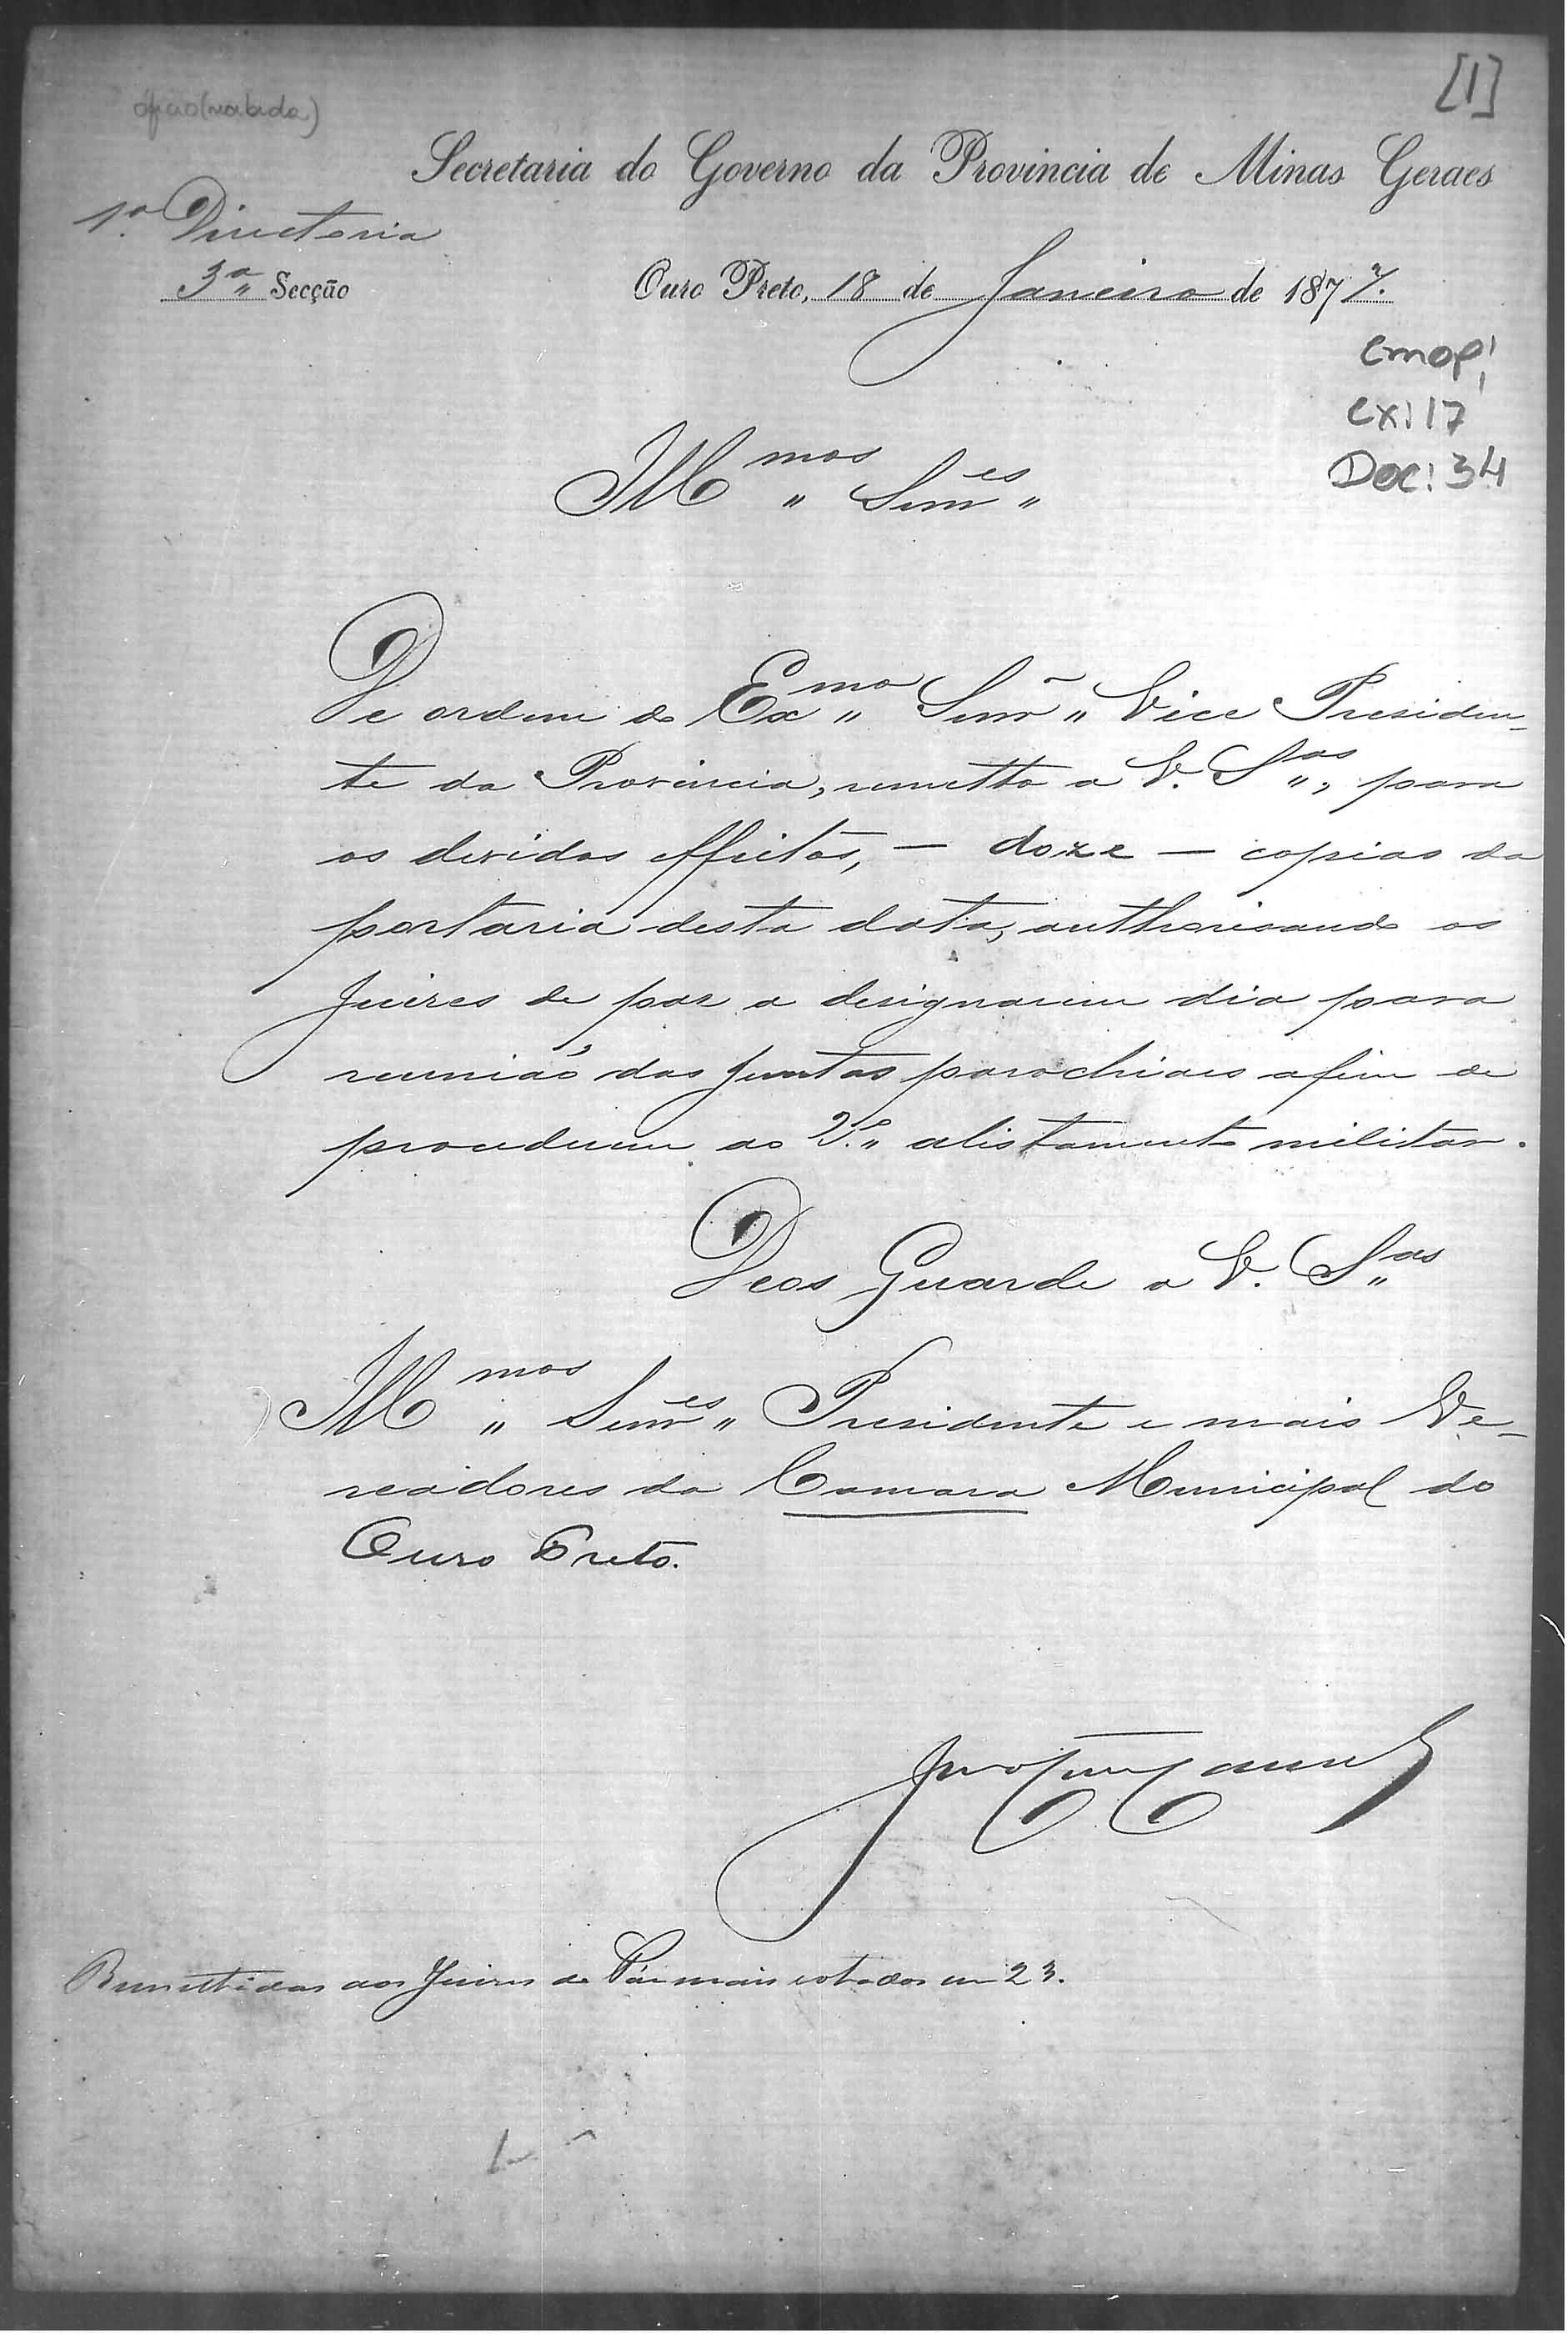 [1]
Secretaria do Governo da Provincia de Minas Geraes
1.a Directoria
3a Secção
Ouro Preto, 18 de Janeiro de 1877.
CMOP!
CX: 17
Doc: 34
Illmos Senres
De ordem do Exmo Senr Vice Presiden-
te da Provincia, remetto a V. Sas, para
os devidos effeitos, — doze — copias da
portaria desta data, authorisando os
Juizes de paz a designarem dia para
reunião das Juntas parochiaes afim de
procederem ao 2.o alistamento militar.
Deos Guarde a V. Sas
Illmos Senres Presidente e mais Ve-
readores da Camara Municipal do
Ouro Preto.
Remettidas aos Juizes de Páz mais votados em 23.